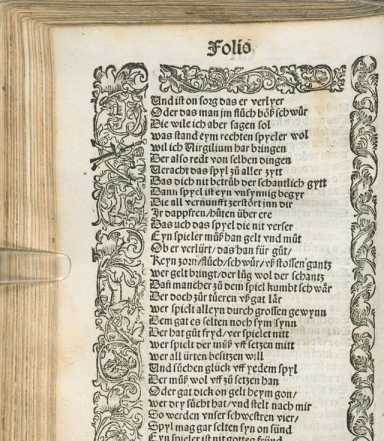 Folio
Und ist on sorg das er verlyer
Oder das man jm flůch bôß schwůr
Die wile ich aber sagen sol
was stand eym rechten spyeler wol
wil ich Uirgilium har bringen
Der also redt von selben dingen
Ueracht das spyl zů aller zytt
Das dich nit betrůb der schantlich gytt
Dann spyl ist eyn vnsynnig begyr
Die all vernunfft zerstôrt jnn dir
Ir dappfren / hůten über ere
Das uch das spyel die nit verser
Eyn spieler můß han gelt vnd můt
Ob er verlürt / das han für gůt /
Keyn zorn / flůch / schwůr / vß stossen gantz
wer gelt bringt / der lůg wol der schantz
Dañ mancher zů dem spiel kumbt schwâr
Der doch zůr türen vß gat lâr
wer spielt alleyn durch grossen gewynn
Dem gat es selten noch sym synn
Der hat gůt fryd / wer spielet nitt
wer spielt der můß vff setzen mitt
wer all ürten besitzen will
Und sůchen glück vff yedem spyl
Der můß wol vff zů setzen han
Oder gat dick on gelt heym gon /
wer dry sücht hat / vnd stelt nach mir
So werden vnser schwestren vier /
Spyl mag gar selten syn on sünd
Eyn spieler ist nit gottes fründ